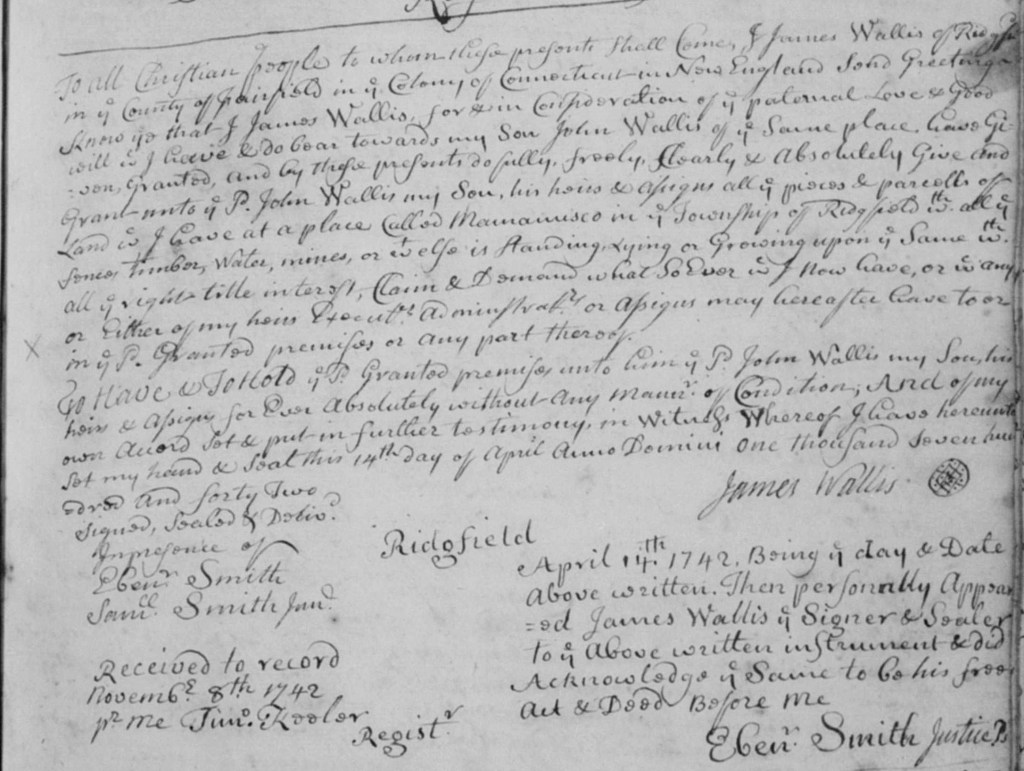 To all Christian people to whom these presents shall Come, I James Wallis of Ridgf
in ye County of Fairfield in ye Colony of Connecticut in New England Send Greeting
Know ye that I James Wallis, for & in Consideration of ye paternal Love & Good
will wc I have & do bear towards my Son John Wallis of ye Same place, have Gi-
=ven, Granted, and by these presents do fully, freely, Clearly & Absolutely Give and
Grant unto ye Sd. John Wallis my Son, his heirs & Assigns all ye pieces & parcells of
Land wc I have at a place Called Mamanisco in ye Township of Ridgfield wth. all ye
fences timber, Water, mines, or wt else is Standing, Lying or Growing upon ye Same wth.
all ye right title interest, Claim & Demand what So Ever wc I now have, or wc any
or Either of my heirs Executrs. Administratrs. or Assigns may hereafter have to or
in ye Sd. Granted premises or any part thereof.
To Have & To Hold ye Sd. Granted premises unto him ye Sd. John Wallis my Son, his
heirs & Assigns for Ever Absolutely without Any Mannr. of Condition; And of my
own Accord Set & put in further testimony, in Witness Whereof I have hereunto
Set my hand & Seal this 14th day of April Anno Domini one thousand Seven hun
=dred and forty Two
James Wallis
Signed, Sealed & Delivd.
In presence of
Ebenr. Smith
Samll. Smith Junr.
Ridgfield
April 14th. 1742. Being ye day & Date
Above written. Then personally Appear
=ed James Wallis ye Signer & Sealer
to ye Above written instrument & did
Acknowledge ye Same to be his free
Act & Deed Before Me
Ebenr. Smith Justice Ps
Received to record
Novembr. 8th 1742
pr. me Timo. Keeler
Registr